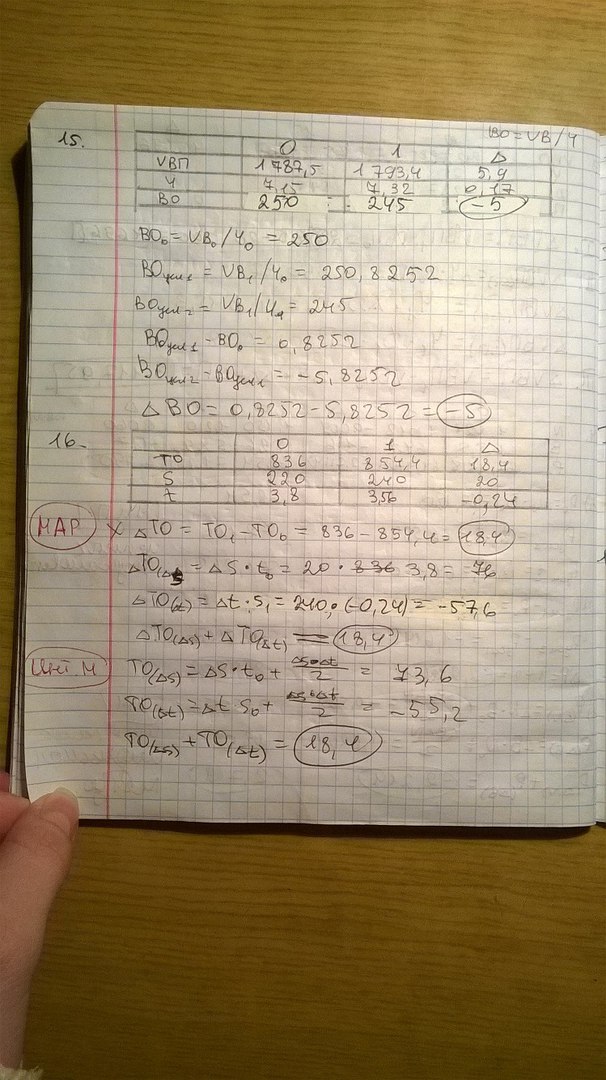 ВО = VB/Ч
15.
0 1 Δ
VВП 1787,5 1793,4 5,9
Ч 7,15 7,32 0,17
ВО 250 245 -5
ВО₀ = VB₀/Ч₀ = 250
ВОусл1 = VB₁/Ч₀ = 250,8252
ВОусл2 = VB₁/Ч₁ = 245
ВОусл1 - ВО₀ = 0,8252
ВОусл2 - ВОусл1 = -5,8252
Δ ВО = 0,8252 - 5,8252 = -5
16.
0 1 Δ
ТО 836 854,4 18,4
S 220 240 20
t 3,8 3,56 -0,24
МАР ΔТО = ТО₁ - ТО₀ = 836 - 854,4 = 18,4
ΔТО(Δs) = ΔS · t₀ = 20 · 836 3,8 = 76
ΔТО(t) = Δt · S₁ = 240 · (-0,24) = -57,6
ΔТО(Δs) + ΔТО(Δt) = 18,4
Инт.М ТО(Δs) = ΔS · t₀ + Δs·Δt/2 = 73,6
ТО(Δt) = Δt · S₀ + Δs·Δt/2 = -55,2
ТО(Δs) + ТО(Δt) = 18,4